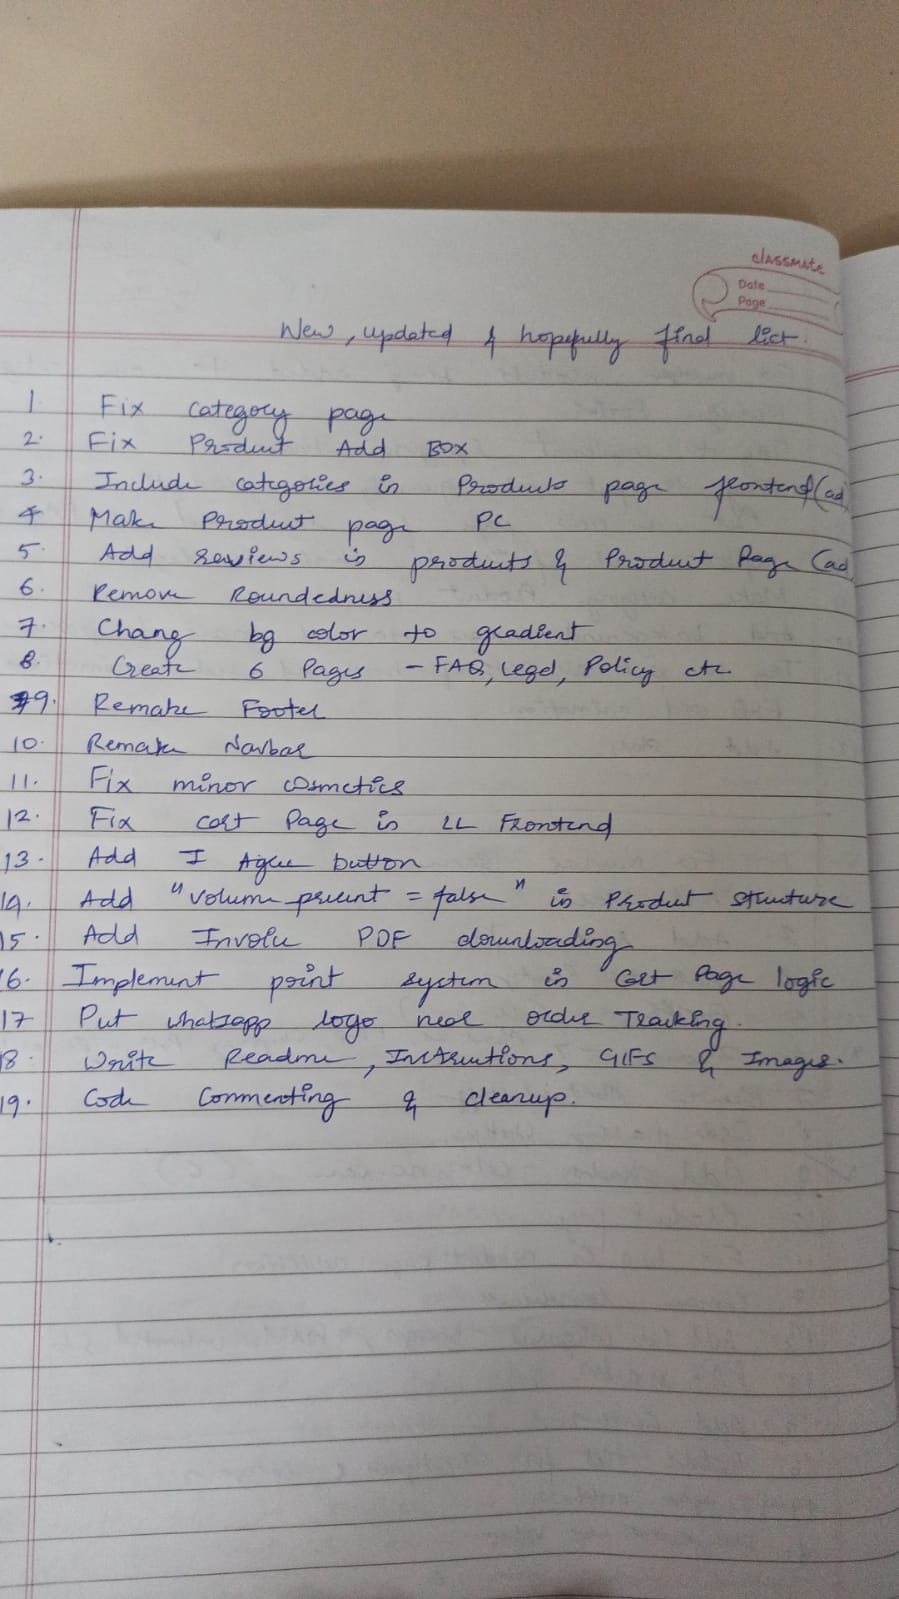 classmate
Date
Page
New, updated & hopefully final list.
1. Fix category page
2. Fix Product Add BOX
3. Include categories in Products page frontend (ad
4 Make Product page PC
5. Add reviews in products & Product Page (ad
6. Remove Roundedness
7. Chang bg color to gradient
8. Create 6 Pages - FAQ, Legal, Policy etc
9. Remake Footer
10. Remake Navbar
11. Fix minor cosmetics
12. Fix cart Page in LL Frontend
13. Add I Agree button
14. Add "volume present = false" in Product structure
15. Add Invoice PDF downloading
16. Implement point system in Cart Page logic
17 Put whatsapp logo near order Tracking.
18. Write Readme, Instructions, GIFS & Images.
19. Code Commenting & cleanup.